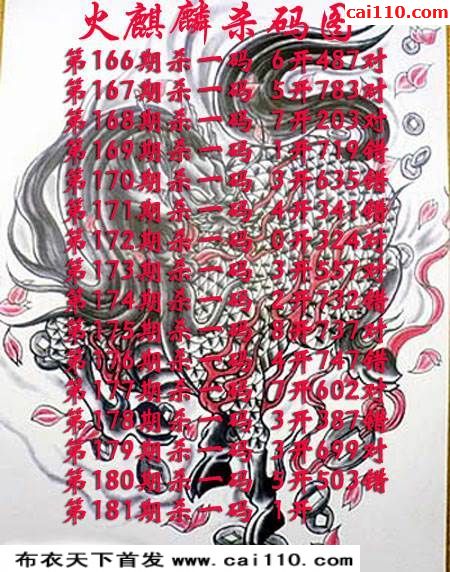 cai110.com
火麒麟杀码图
第166期杀一码 6开487对
第167期杀一码 5开783对
第168期杀一码 7开203对
第169期杀一码 1开719错
第170期杀一码 3开635错
第171期杀一码 4开341错
第172期杀一码 0开324对
第173期杀一码 3开557对
第174期杀一码 2开732错
第175期杀一码 8开737对
第176期杀一码 4开747错
第177期杀一码 7开602对
第178期杀一码 3开387错
第179期杀一码 3开699对
第180期杀一码 5开503错
第181期杀一码 1开
布衣天下首发 www.cai110.com